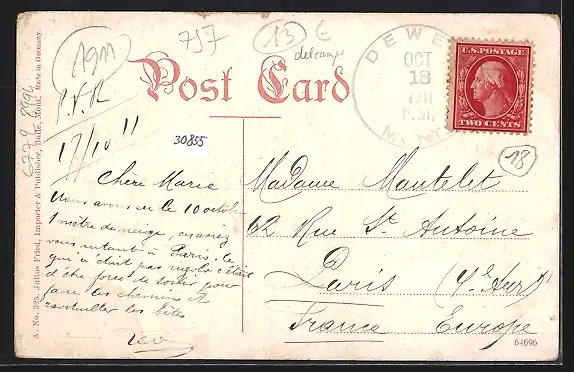 1911
757
13 €
delcampe
Post Card
DEWE
OCT
18
1911
P.M.
MONT
U.S. POSTAGE
TWO CENTS
18
P.V.R
17/10 11
30855
6779 8994
A. No. 325. Julius Fried, Importer & Publisher, Butte, Mont. Made in Germany.
Chère Marie
Nous avons eu le 10 octobre
1 mètre de neige, en avez
vous autant à Paris. Ce
qui n'était pas rigolo c'était
d'être forcé de sortir pour
faire les chemins et
ravitailler les bêtes
Léo
Madame Mantelet
62 Rue St Antoine
Paris
France Europe
64696